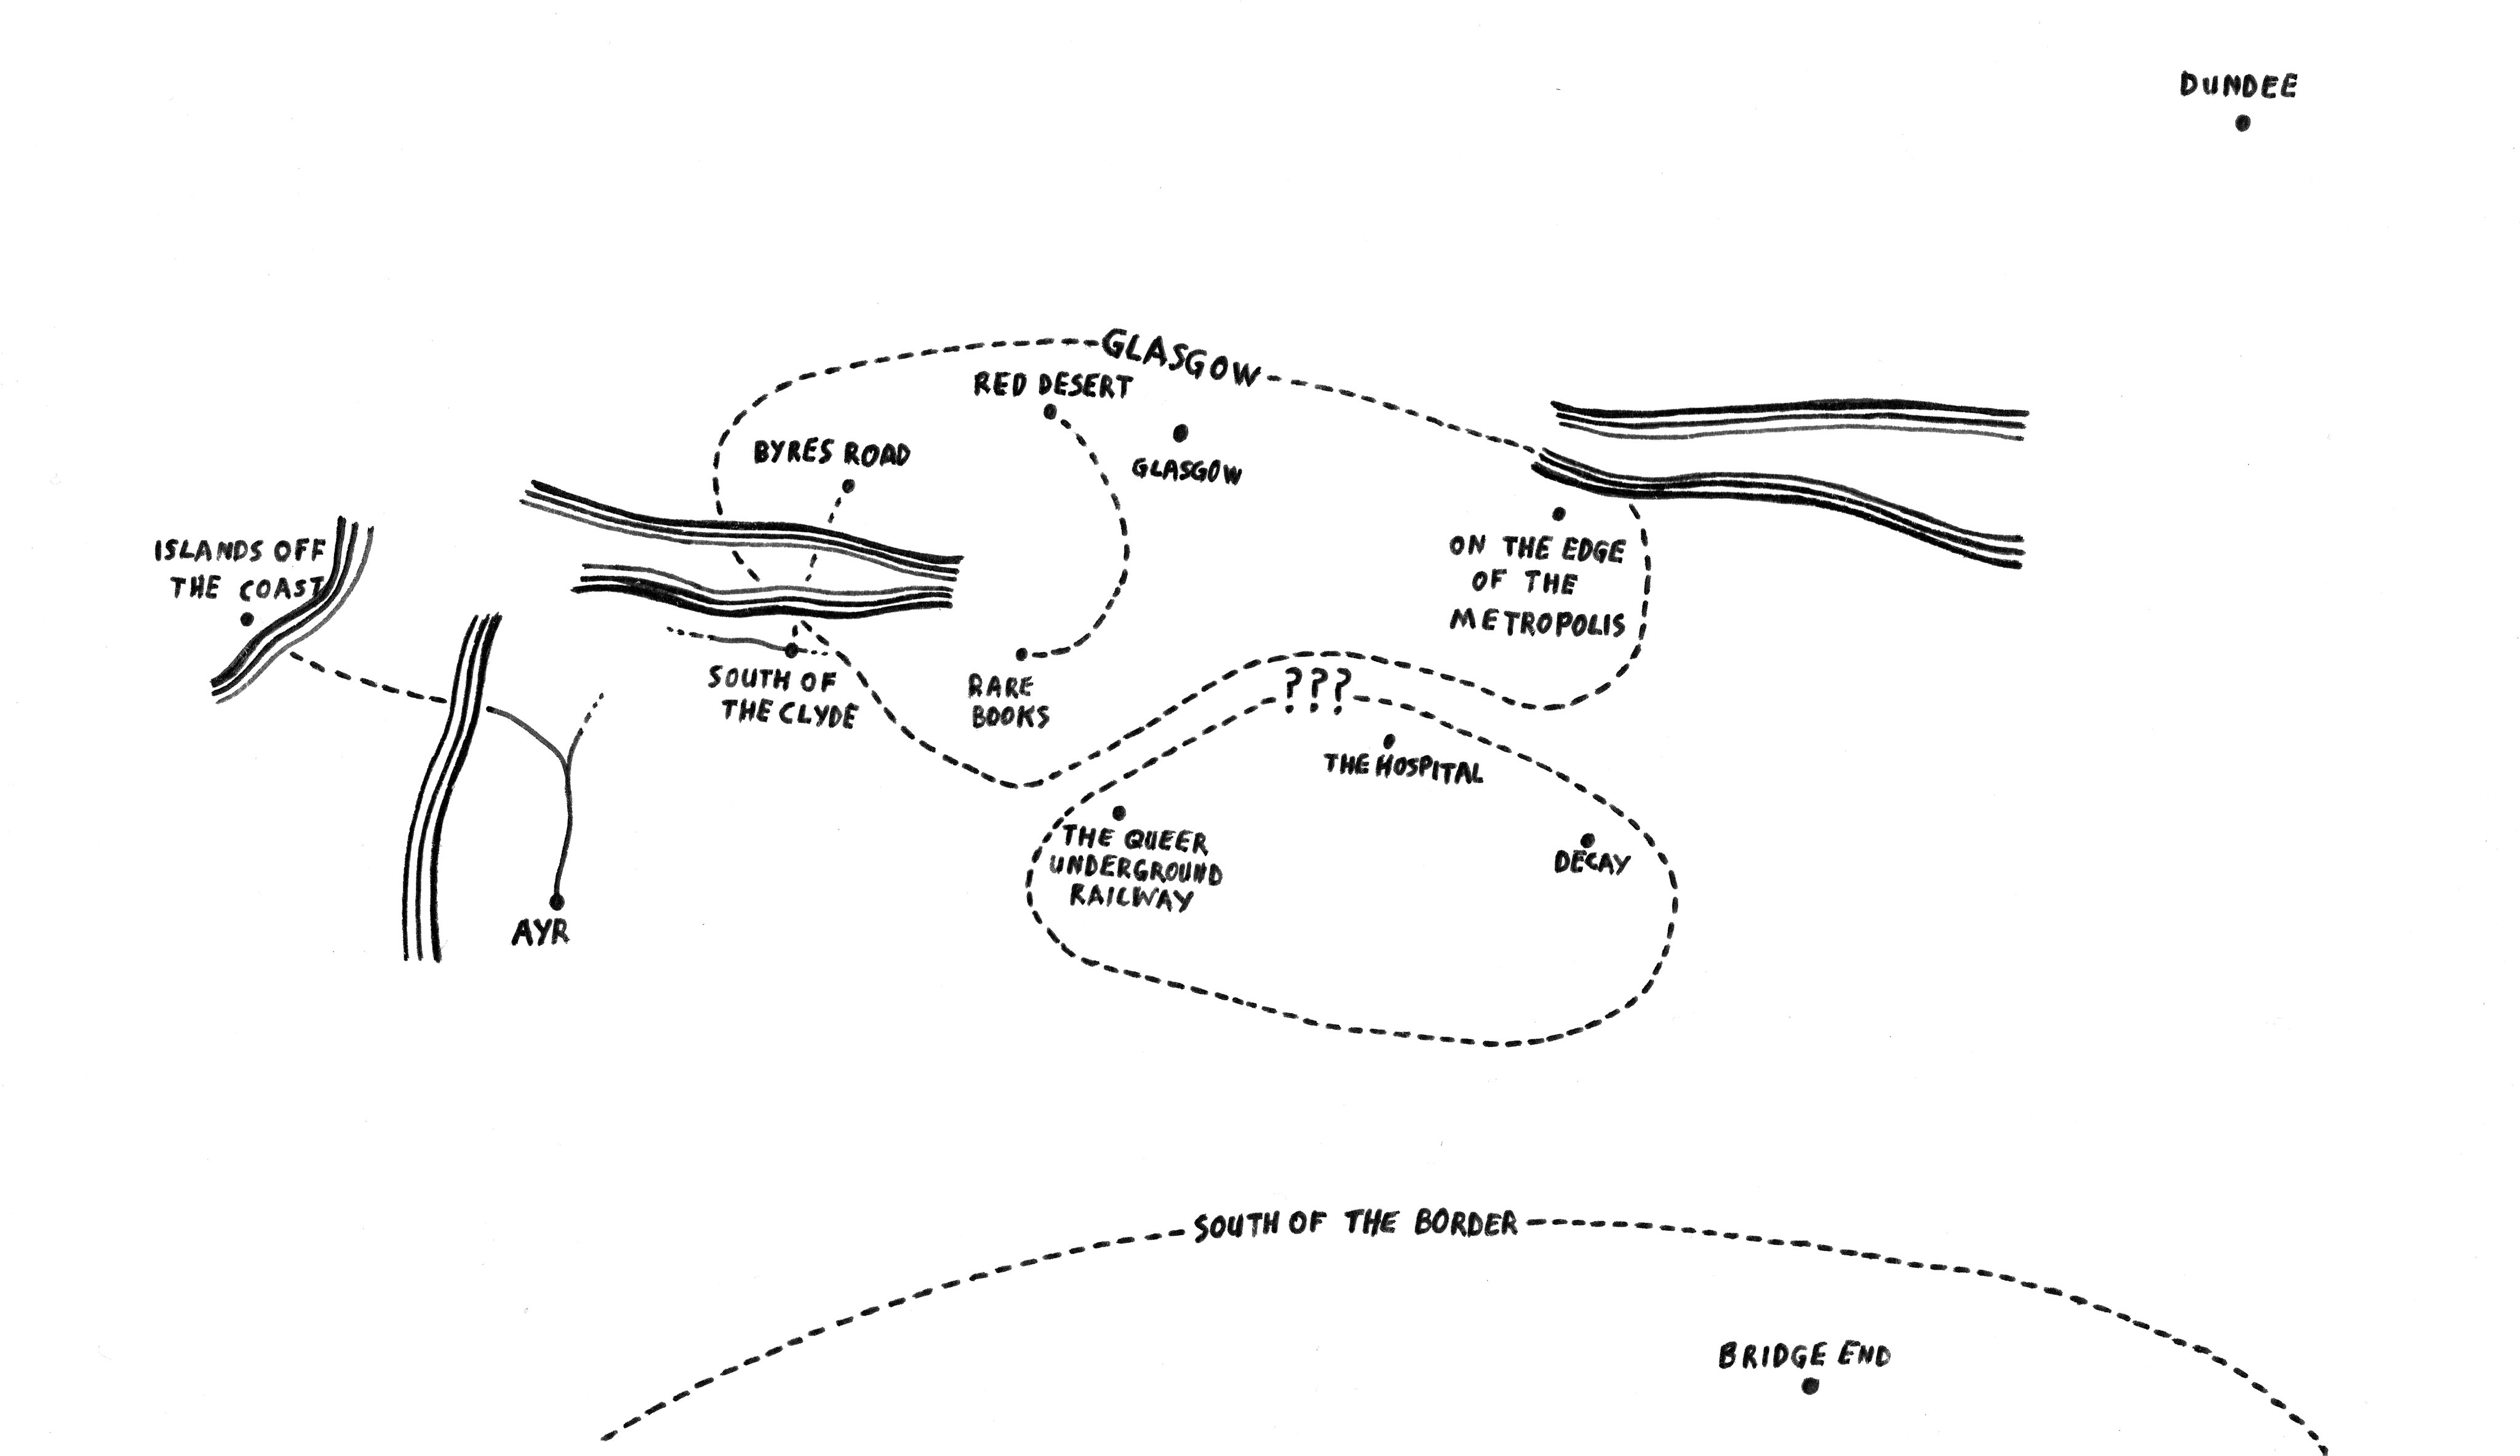 DUNDEE
GLASGOW
RED DESERT
BYRES ROAD
GLASGOW
ISLANDS OFF
THE COAST
ON THE EDGE
OF THE
METROPOLIS
SOUTH OF
THE CLYDE
RARE
BOOKS
???
THE HOSPITAL
THE QUEER
UNDERGROUND
RAILWAY
DECAY
AYR
SOUTH OF THE BORDER
BRIDGE END